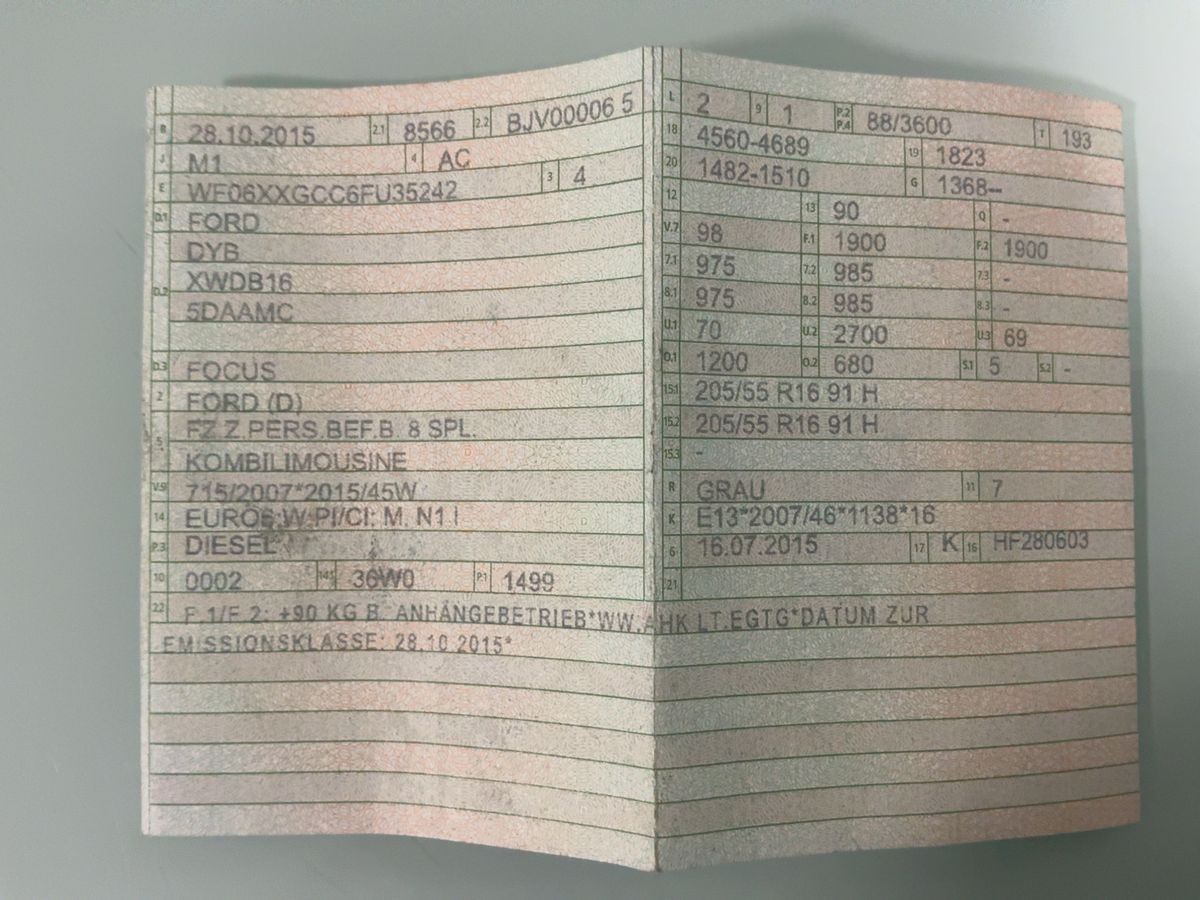 B 28.10.2015 2.1 8566 2.2 BJV00006 5
J M1 4 AC
E WF06XXGCC6FU35242 3 4
D.1 FORD
DYB
D.2 XWDB16
5DAAMC
D.3 FOCUS
2 FORD (D)
5 FZ.Z.PERS.BEF.B. 8 SPL.
KOMBILIMOUSINE
V.9 715/2007*2015/45W
14 EURO6;W;PI/CI; M, N1 I
P.3 DIESEL
10 0002 14.1 36W0 P.1 1499
L 2 9 1 P.2 P.4 88/3600 T 193
18 4560-4689 19 1823
20 1482-1510 G 1368--
12 13 90 Q -
V.7 98 F.1 1900 F.2 1900
7.1 975 7.2 985 7.3 -
8.1 975 8.2 985 8.3 -
U.1 70 U.2 2700 U.3 69
O.1 1200 O.2 680 S.1 5 S.2 -
15.1 205/55 R16 91 H
15.2 205/55 R16 91 H
15.3 -
R GRAU 11 7
K E13*2007/46*1138*16
6 16.07.2015 17 K 16 HF280603
21
22 F.1/F.2: +90 KG B. ANHÄNGEBETRIEB*WW.AHK LT.EGTG*DATUM ZUR
EMISSIONSKLASSE: 28.10.2015*